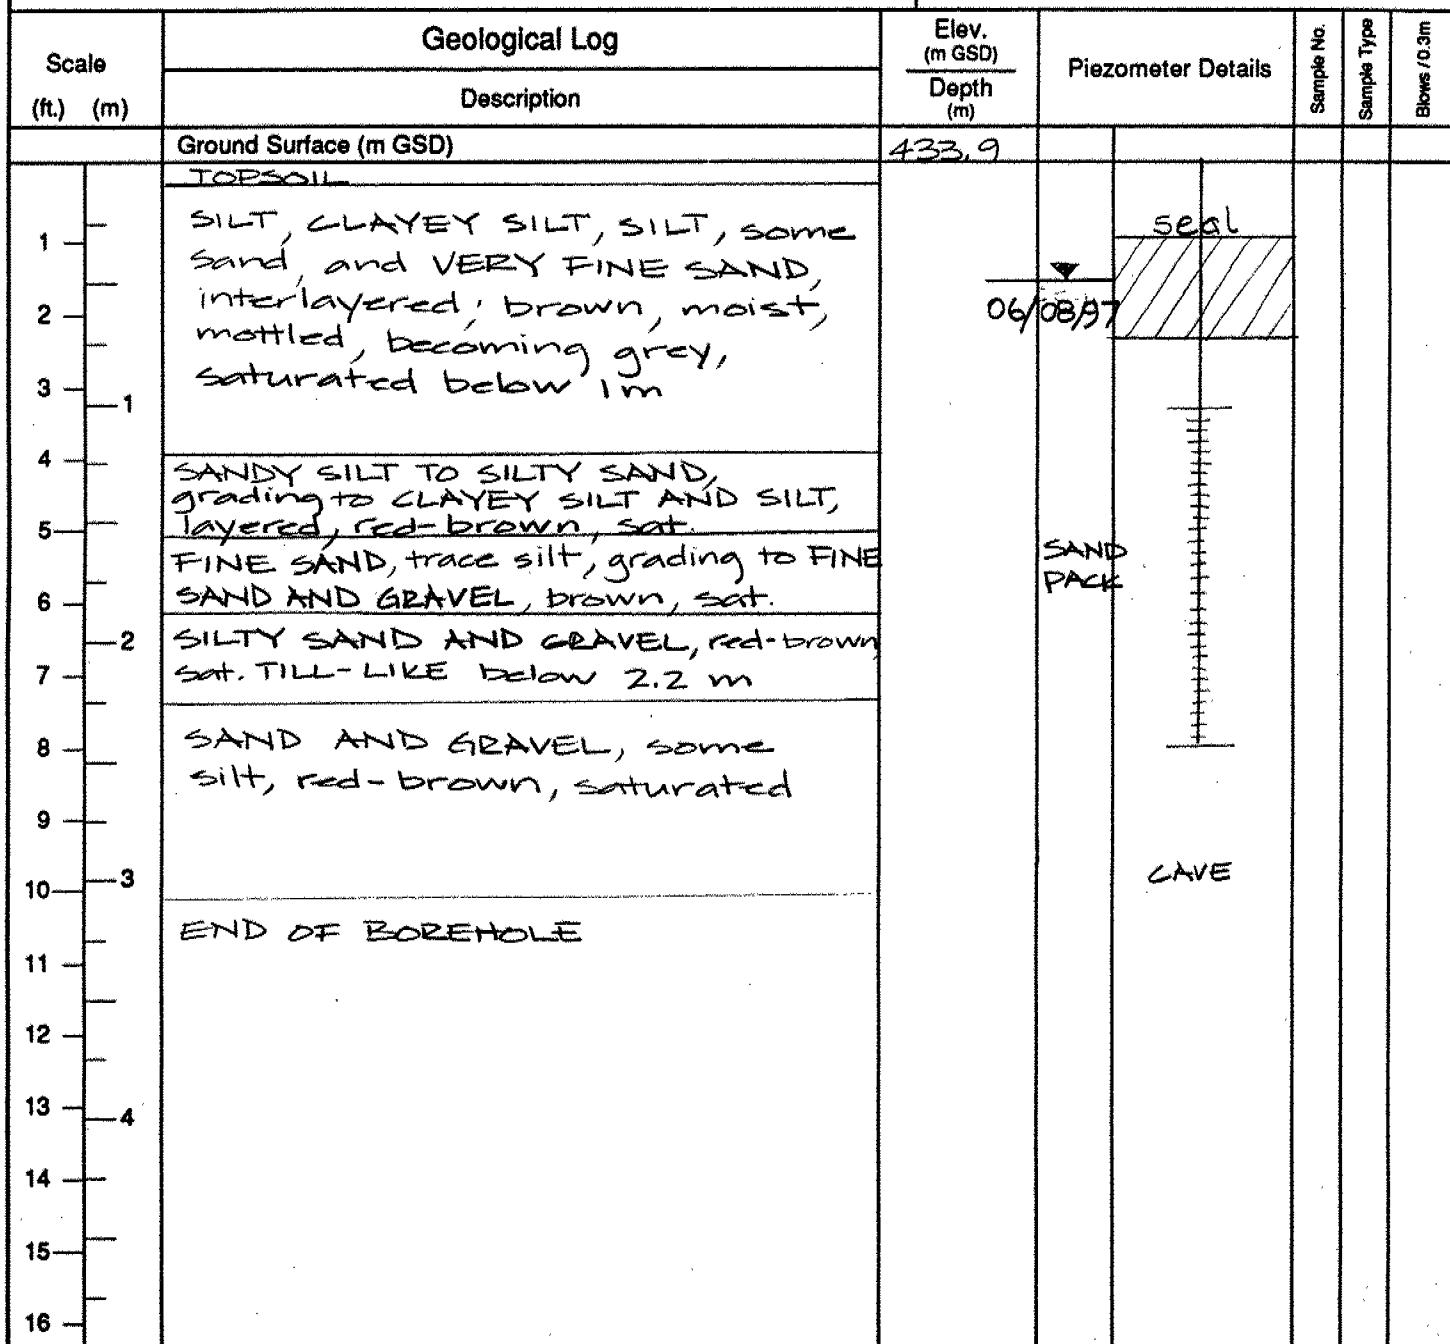 Scale
(ft.) (m)
Geological Log
Description
Elev.
(m GSD)
Depth
(m)
Piezometer Details
Sample No.
Sample Type
Blows / 0.3m
Ground Surface (m GSD)
433.9
TOPSOIL
SILT, CLAYEY SILT, SILT, some
sand, and VERY FINE SAND,
interlayered; brown, moist,
mottled, becoming grey,
saturated below 1m
SANDY SILT TO SILTY SAND,
grading to CLAYEY SILT AND SILT,
layered, red-brown, sat.
FINE SAND, trace silt, grading to FINE
SAND AND GRAVEL, brown, sat.
SILTY SAND AND GRAVEL, red-brown
sat. TILL-LIKE below 2.2 m
SAND AND GRAVEL, some
silt, red-brown, saturated
END OF BOREHOLE
seal
06/08/97
SAND
PACK
CAVE
1
2
3
4
5
6
7
8
9
10
11
12
13
14
15
16
1
2
3
4